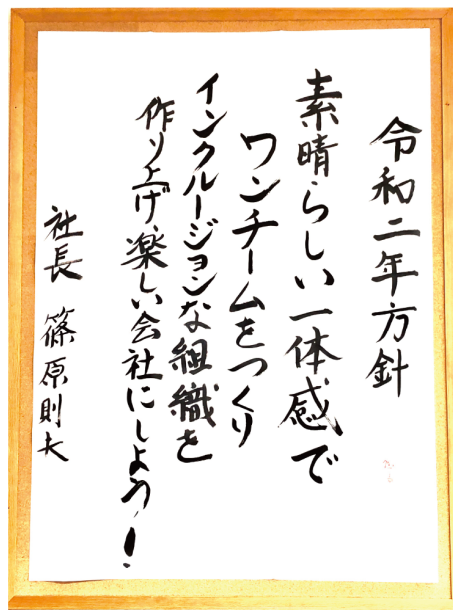 令和二年方針
素晴らしい一体感で
ワンチームをつくり
インクルージョンな組織を
作り上げ、楽しい会社にしよう！
社長 篠原則夫